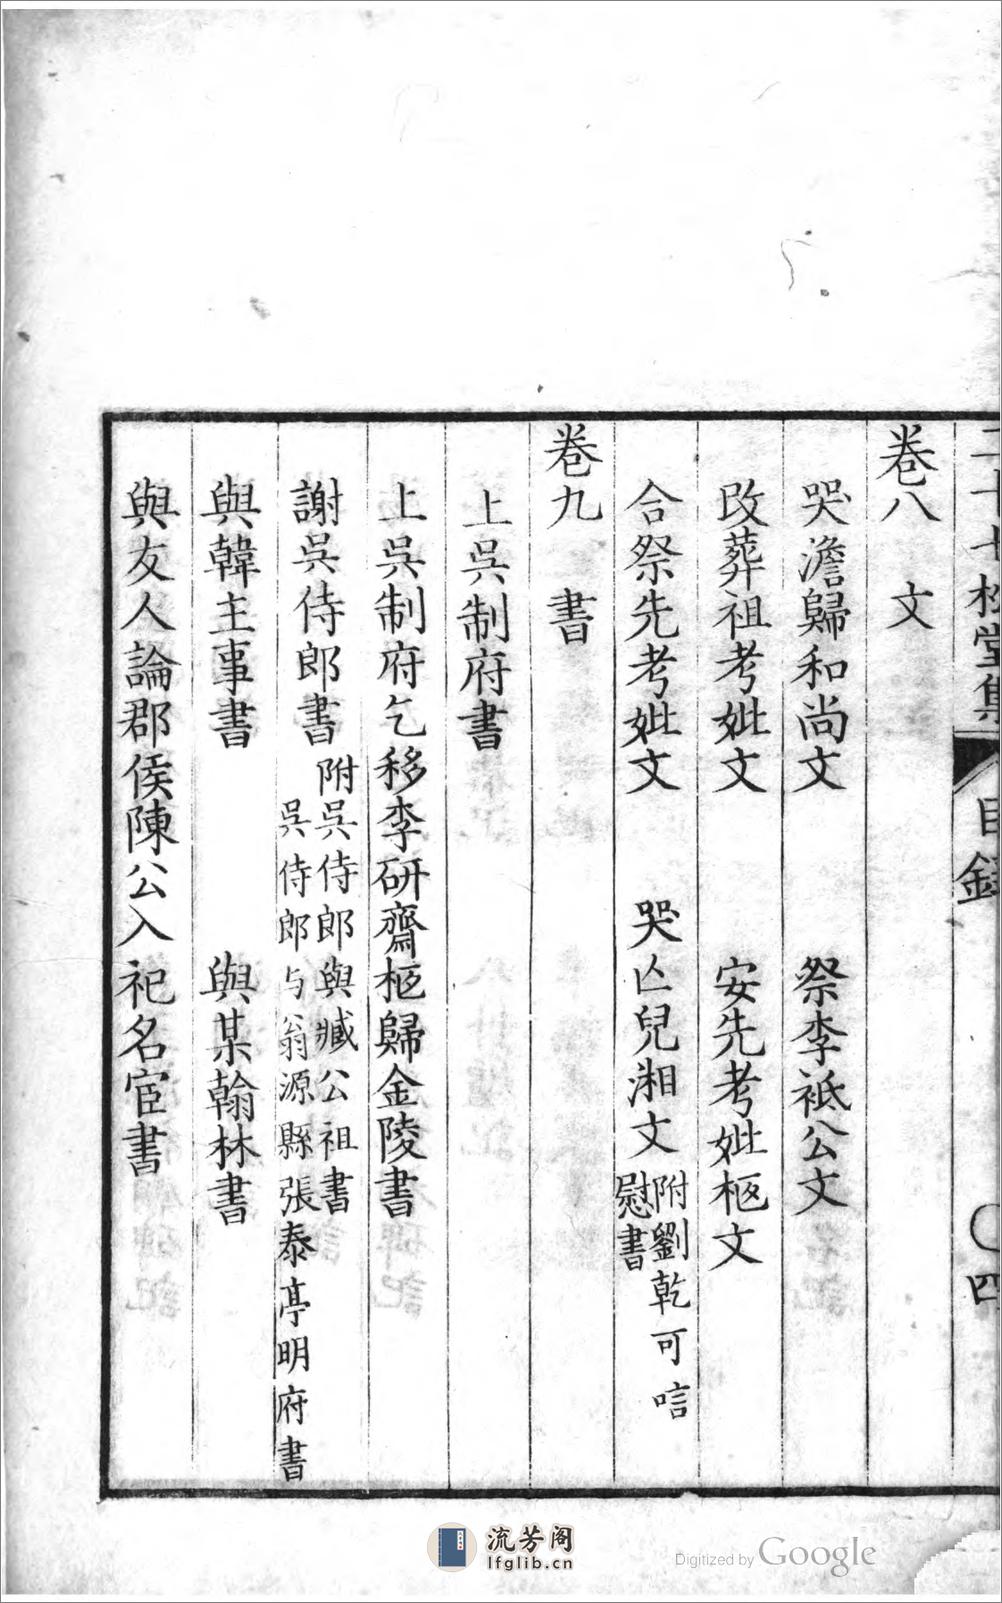 二十七松堂集 目錄 〇四
卷八 文
哭澹歸和尚文 祭李祗公文
改葬祖考妣文 安先考妣柩文
合祭先考妣文 哭亾兒湘文 附劉乾可唁慰書
卷九 書
上吳制府書
上吳制府乞移李研齋柩歸金陵書
謝吳侍郎書 附吳侍郎與臧公祖書 吳侍郎与翁源縣張泰亭明府書
與韓主事書 與某翰林書
與友人論郡侯陳公入祀名宦書
流芳阁
lfglib.cn
Digitized by Google